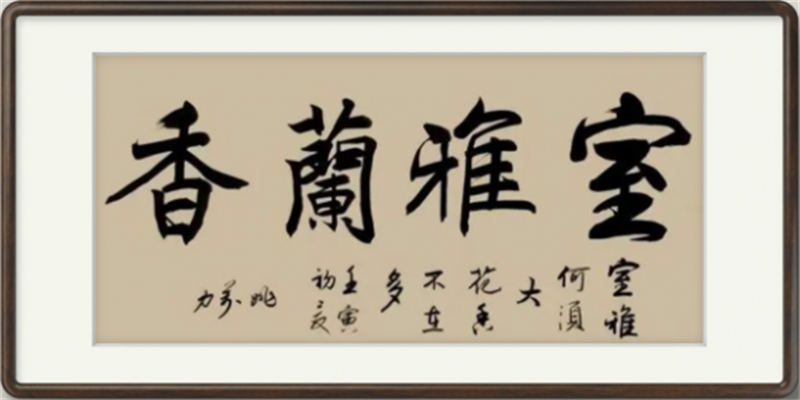 室雅蘭香
室雅
何須
大
花香
不在
多
壬寅
初夏
姚